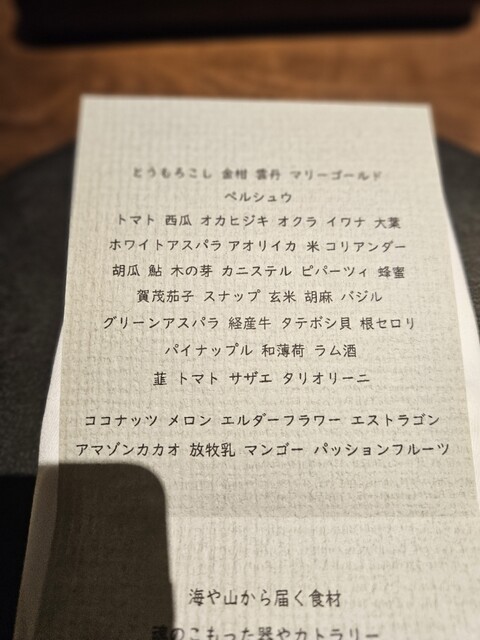 とうもろこし 金柑 雲丹 マリーゴールド
ペルシュウ
トマト 西瓜 オカヒジキ オクラ イワナ 大葉
ホワイトアスパラ アオリイカ 米 コリアンダー
胡瓜 鮎 木の芽 カニステル ピパーツィ 蜂蜜
賀茂茄子 スナップ 玄米 胡麻 バジル
グリーンアスパラ 経産牛 タテボシ貝 根セロリ
パイナップル 和薄荷 ラム酒
韮 トマト サザエ タリオリーニ
ココナッツ メロン エルダーフラワー エストラゴン
アマゾンカカオ 放牧乳 マンゴー パッションフルーツ
海や山から届く食材
のこもった器やカトラリー